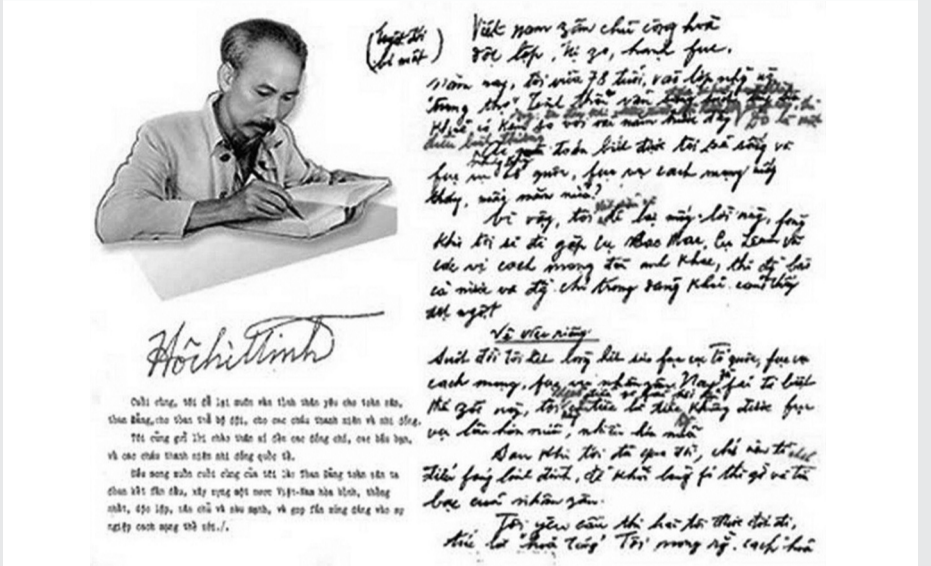 HồChíMinh
Cuối cùng, tôi để lại muôn vàn tình thân yêu cho toàn zân,
toàn Đảng, cho toàn thể bộ đội, cho các cháu thanh niên và nhi đồng.
Tôi cũng gửi lời chào thân ái đến các đồng chí, các bầu bạn,
và các cháu thanh niên nhi đồng quốc tế.
Điều mong muốn cuối cùng của tôi là: Toàn Đảng toàn zân ta
đoàn kết fấn đấu, xây zựng một nước Việt-Nam hòa bình, thống
nhất, độc lập, zân chủ và zàu mạnh, và góp fần xứng đáng vào sự
nghiệp cách mạng thế zới./.
(Tuyệt đối
bí mật)
Việt nam zân chủ cộng hoà
độc lập, tự zo, hạnh fuc.
năm nay, tôi vừa 78 tuổi, vào lớp những
"trung thọ". Tinh thần vẫn
so với vài năm trước đây. Đó là một
điều bình thường
đoán biết được tôi còn sống và
fục vụ tổ quốc, fục vụ cách mạng mấy
tháng, mấy năm nữa?
Vì vậy, tôi để lại mấy lời này, fòng
khi tôi sẽ đi gặp cụ Mac, cụ Lenin và
các vị cách mạng đàn anh khác, thì đồng bào
cả nước và đồng chí trong Đảng khỏi cảm thấy
đột ngột
Về việc riêng
Suốt đời tôi hết lòng hết sức fục vụ Tổ quốc, fục vụ
cách mạng, fục vụ nhân zân. Nay zù fải từ biệt
thế zới này, tôi không có điều gì fải hối hận, chỉ tiếc là tiếc không được fục
vụ lâu hơn nữa, nhiều hơn nữa
Sau khi tôi đã qua đời, chớ nên tổ chức
điếu fúng linh đình, để khỏi lãng fí thì giờ và tiền
bạc của nhân zân.
Tôi yêu cầu thi hài tôi được đốt đi,
tức là "hoả táng" Tôi mong rằng cách hoả